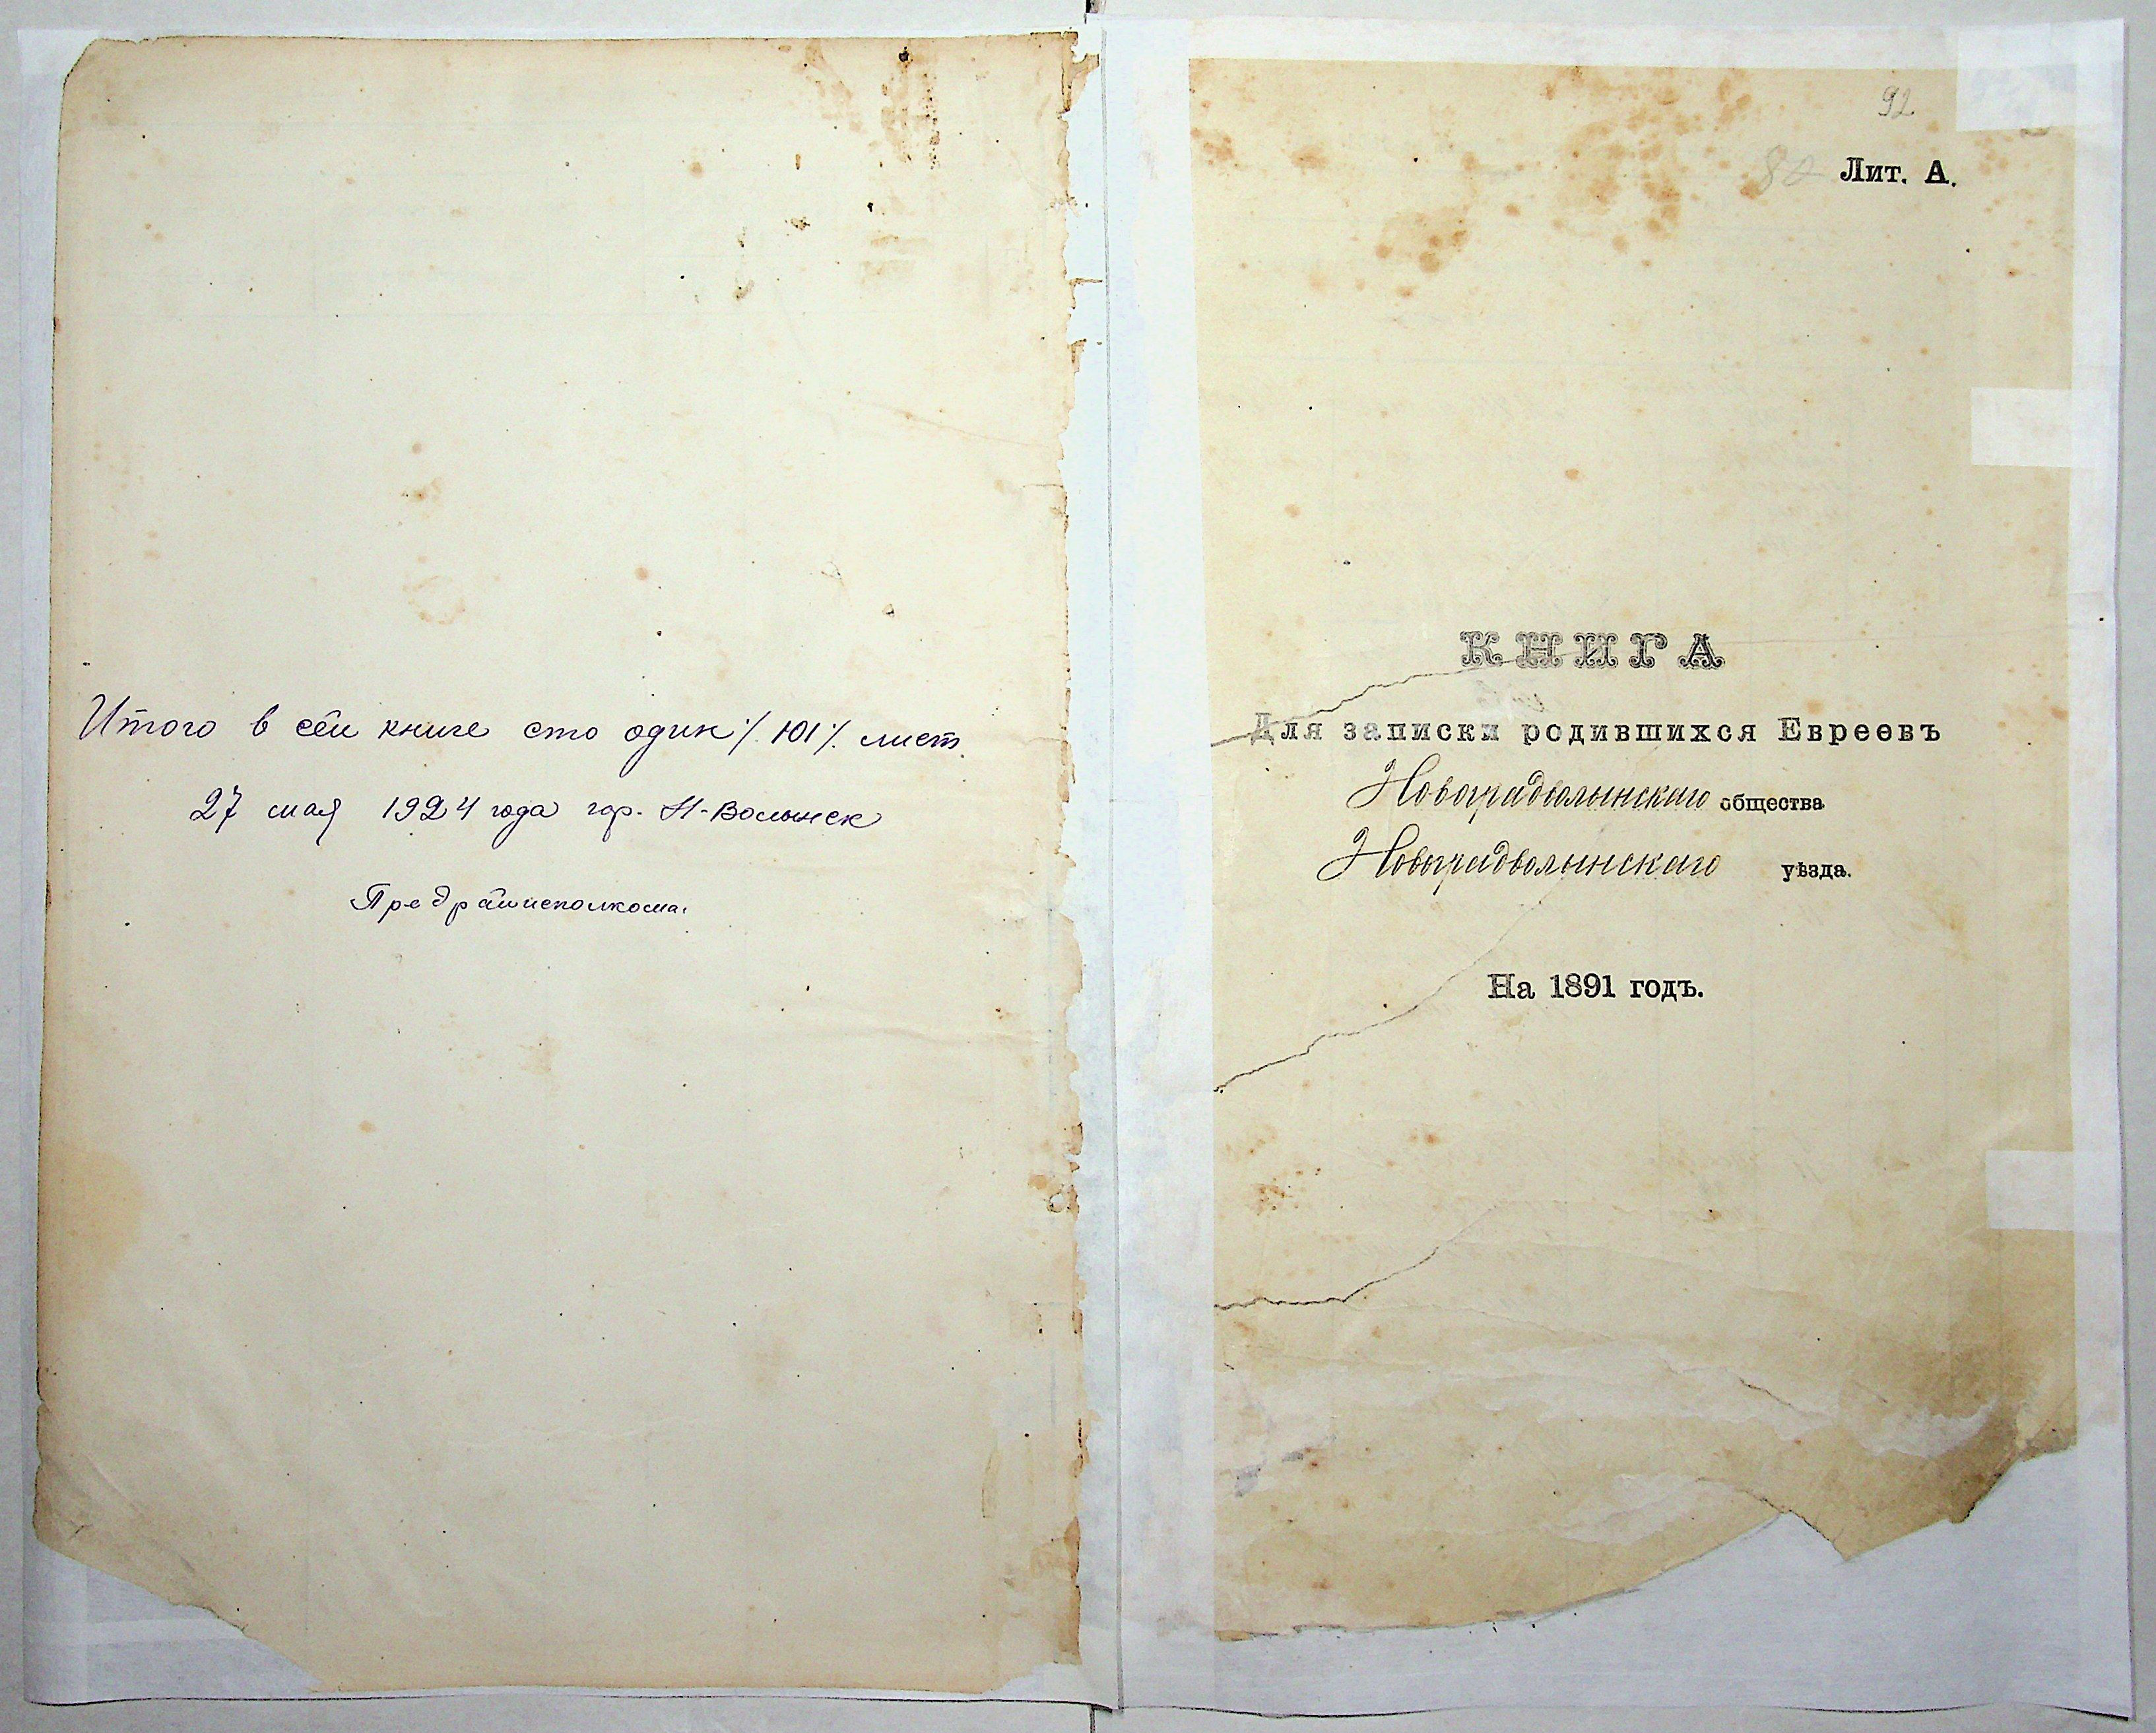 Итого в сей книге сто один /. 101 /. лист.
27 мая 1924 года гор. Н-Волынск
Предрайисполкома.
92
80 Лит. А.
КНИГА
Для записки родившихся Евреевъ
Новоградволынскаго общества
Новоградволынскаго уѣзда.
На 1891 годъ.